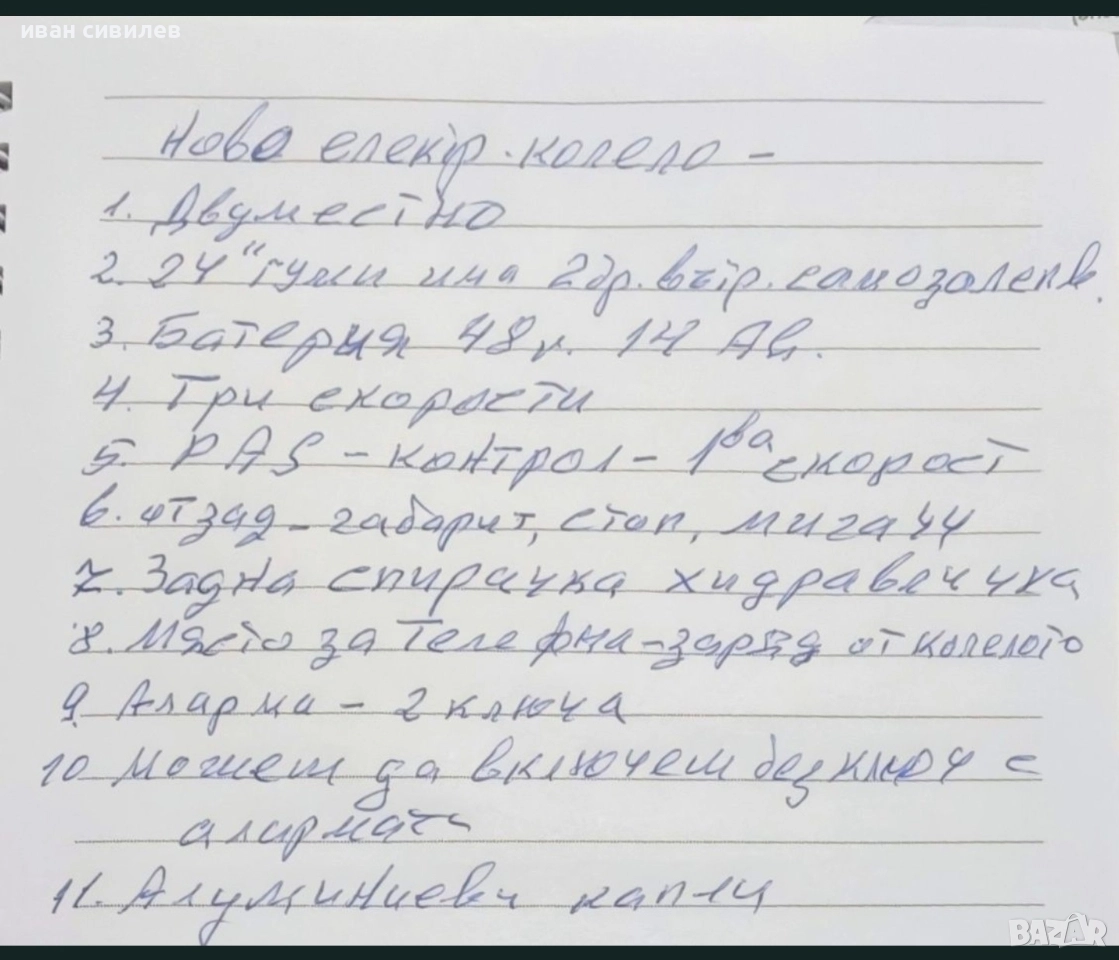 иван сивилев
Ново електр. колело -
1. Двуместно
2. 24" гуми има 2бр. вътр. самозалепв.
3. Батерия 48v. 14 Ah.
4. Три скорости
5. PAS - контрол - 1ва скорост
6. отзад - габарит, стоп, мигачи
7. Задна спирачка хидравлична
8. Място за телефна - заряд от колелото
9. Аларма - 2 ключа
10 Можем да включем без ключ с
алармата
11. Алуминиеви капли
BAZAR